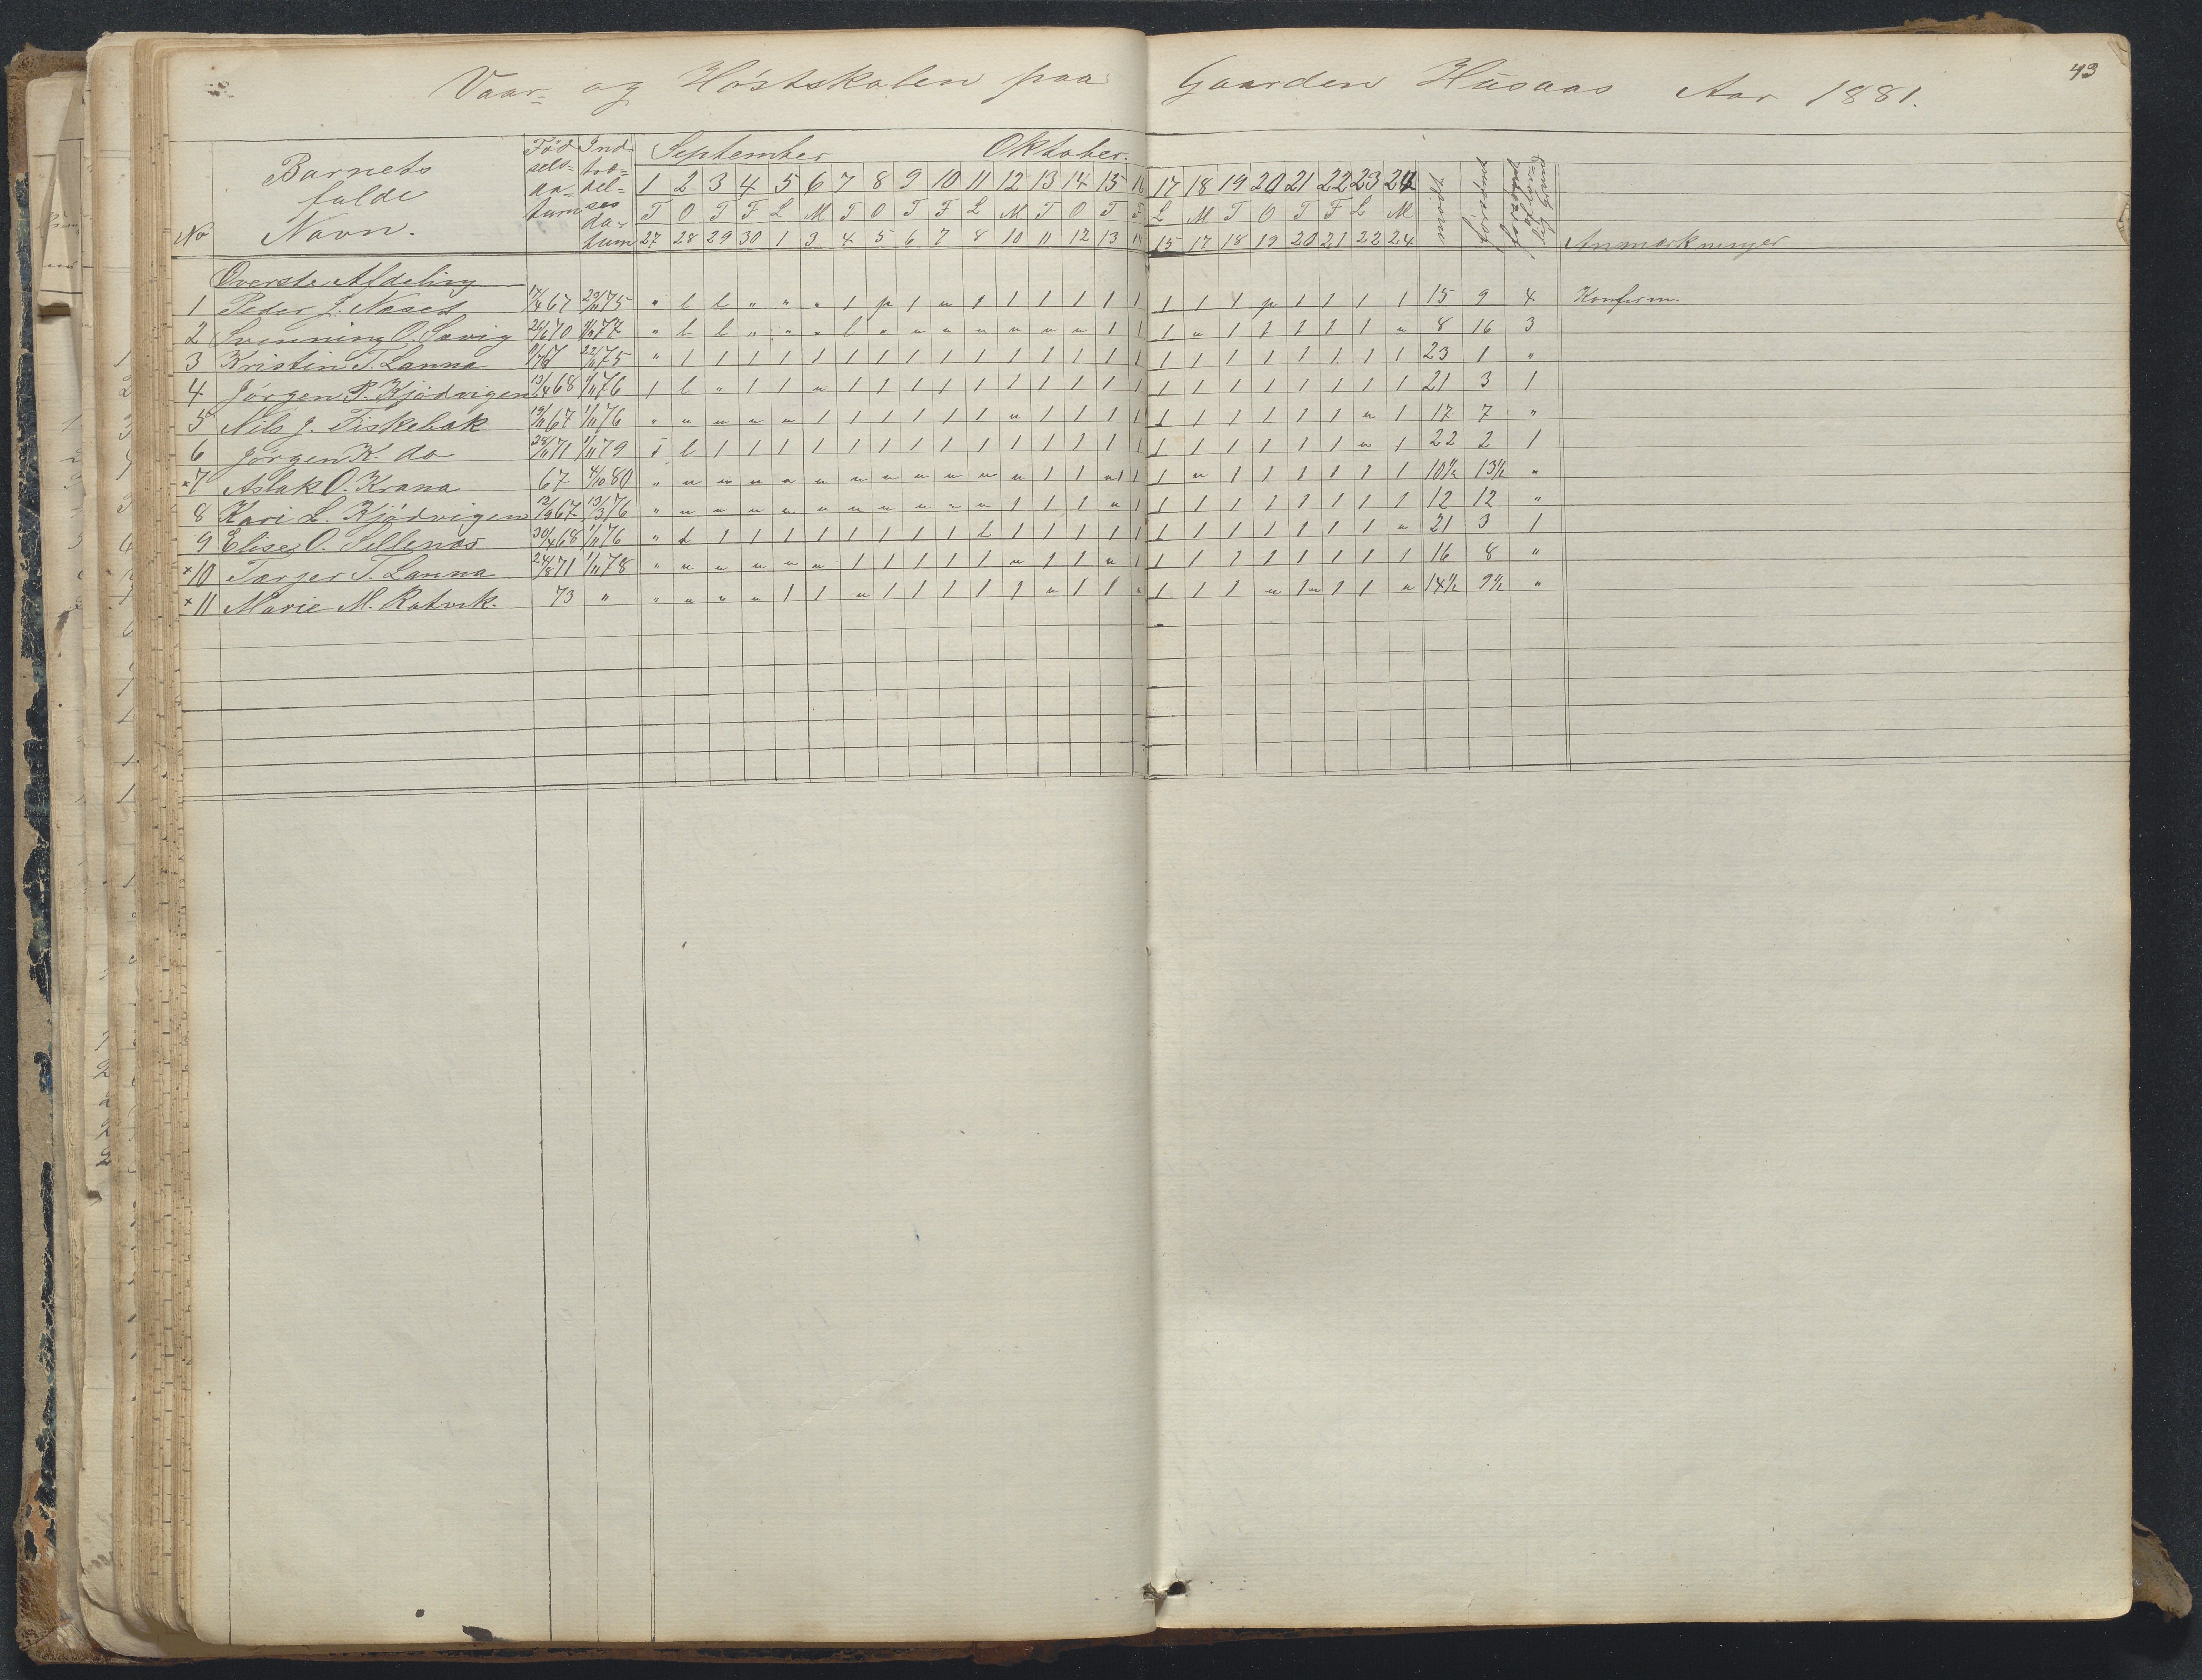 43
Vaar- og Høstskolen paa Gaarden Husaas Aar 1881.
No Barnets fulde Navn. Fødselsdatum Indtrædelsesdatum September Oktober. mødt forsømt forsømt af lovlig Grund Anmærkninger
1 2 3 4 5 6 7 8 9 10 11 12 13 14 15 16 17 18 19 20 21 22 23 24
T O T F L M T O T F L M T O T F L M T O T F L M
27 28 29 30 1 3 4 5 6 7 8 10 11 12 13 14 15 17 18 19 20 21 22 24
Øverste Afdeling
1 Peder J. Neset 17/4 67 29/11 75 " l l " " " 1 p 1 " 1 1 1 1 1 1 1 1 1 p 1 1 1 1 15 9 4 Konferm.
2 Svenning O. Savig 26/1 70 77 " l l " " " l " " " " " " " 1 1 1 " 1 1 1 1 1 " 8 16 3
3 Kristin T. Lanna 67 22/11 75 " 1 1 1 1 1 1 1 1 1 1 1 1 1 1 1 1 1 1 1 1 1 1 1 23 1 "
4 Jørgen P. Kjødvigen 13/4 68 1/11 76 1 l " 1 1 " 1 1 1 1 1 1 1 1 1 1 1 1 1 1 1 1 1 1 21 3 1
5 Nils J. Fiskebæk 19/11 67 1/11 76 " " " " " 1 1 1 1 1 1 " 1 1 1 1 1 1 1 1 1 1 " 1 17 7 "
6 Jørgen K. do 28/11 71 1/11 79 1 l 1 1 1 1 1 1 1 1 1 1 1 1 1 1 1 1 1 1 1 1 " 1 22 2 1
×7 Aslak O. Krana 67 4/10 80 " " " " " " " " " " " " 1 1 "1 1 1 " 1 1 1 1 1 1 10½ 13½ "
8 Kari L. Kjødvigen 12/9 67 13/3 76 " " " " " " " " " " " 1 1 1 " 1 1 1 1 1 1 1 1 1 12 12 "
9 Elise O. Sillenæs 30/4 68 1/11 76 " l 1 1 1 1 1 1 1 1 l 1 1 1 1 1 1 1 1 1 1 1 1 " 21 3 1
×10 Tærjer T. Lanna 24/8 71 1/11 78 " " " " " " 1 1 1 1 1 " 1 1 " 1 1 1 1 1 1 1 1 1 16 8 "
×11 Marie M. Ratvik. 73 " " " " " 1 1 " 1 1 1 1 1 " 1 1 " 1 1 1 " 1" 1 1 " 14½ 9½ "